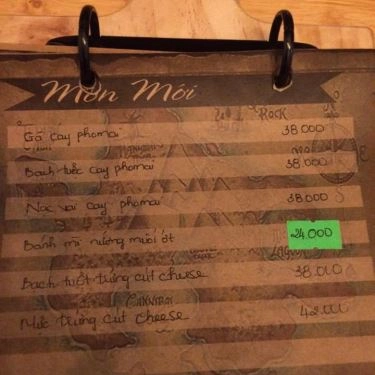 Món Mới
Rock
Gà cay phomai 38.000
Bạch tuộc cay phomai 38.000
Nọc vai cay phomai 38.000
Bánh mì nướng muối ớt 24.000
Bạch tuột trứng cút cheese 38.000
Mực trứng cút cheese